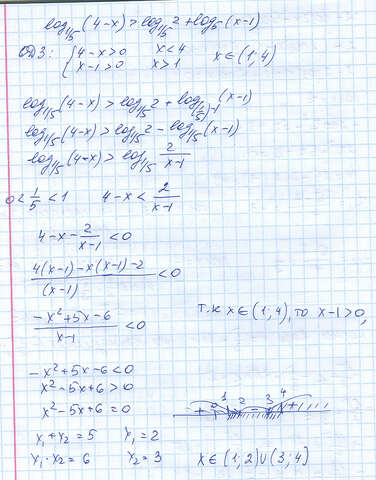 log₁/₅(4-x) > log₁/₅2 + log₅(x-1)
ОДЗ: { 4-x>0 x<4
x-1>0 x>1 x∈(1;4)
log₁/₅(4-x) > log₁/₅2 + log₍₁/₅₎⁻¹(x-1)
log₁/₅(4-x) > log₁/₅2 - log₁/₅(x-1)
log₁/₅(4-x) > log₁/₅ 2/(x-1)
0<1/5<1 4-x < 2/(x-1)
4-x-2/(x-1) <0
(4(x-1)-x(x-1)-2)/(x-1) <0
(-x²+5x-6)/(x-1) <0 т.к x∈(1;4), то x-1>0,
-x²+5x-6<0
x²-5x+6>0
x²-5x+6=0
+ 1 2 - 3 4 +
x₁+x₂=5 x₁=2
x₁·x₂=6 x₂=3 x∈(1;2)∪(3;4]